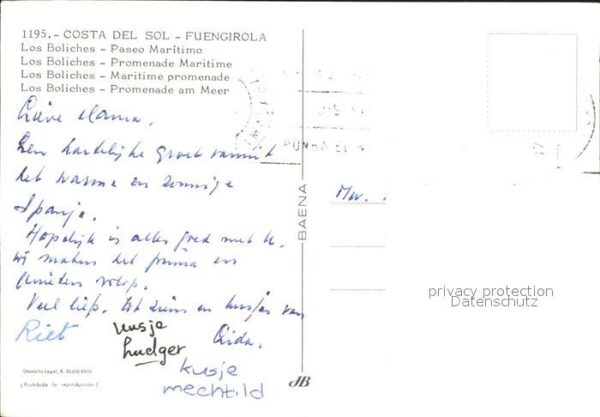 1195.- COSTA DEL SOL - FUENGIROLA
Los Boliches - Paseo Marítimo
Los Boliches - Promenade Maritime
Los Boliches - Maritime promenade
Los Boliches - Promenade am Meer
Lieve Mama,
Een hartelijke groet vanuit
het warme en zonnige
Spanje.
Hopelijk is alles goed met U.
Wij maken het prima en
genieten volop.
Veel liefs. tot ziens en kusjes van
Riet
kusje
Ludger
Aida.
kusje
mechtild
Mw.
BAENA
privacy protection
Datenschutz
(Prohibida la reproducción)
JB